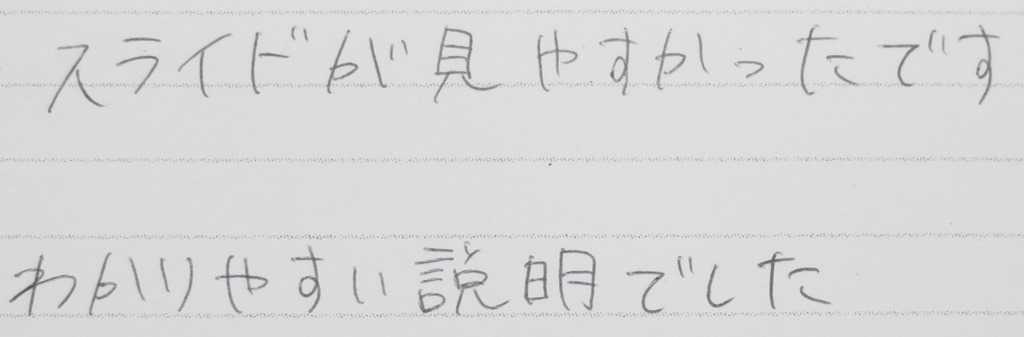 スライドが見やすかったです
わかりやすい説明でした